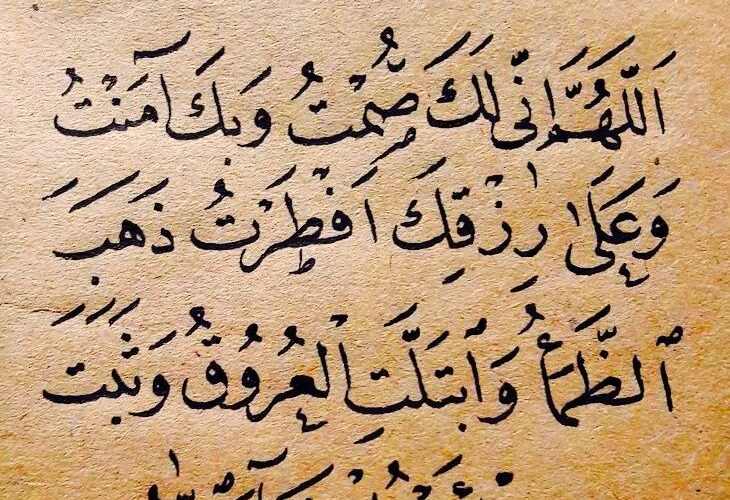 اَللّٰهُمَّ اِنّى لَكَ صُمْتُ وَبِكَ آمَنْتُ
وَعَلَىٰ رِزْقِكَ اَفْطَرْتُ ذَهَبَ
ٱلظَّمَأُ وَٱبْتَلَّتِ الْعُرُوقُ وَثَبَتَ